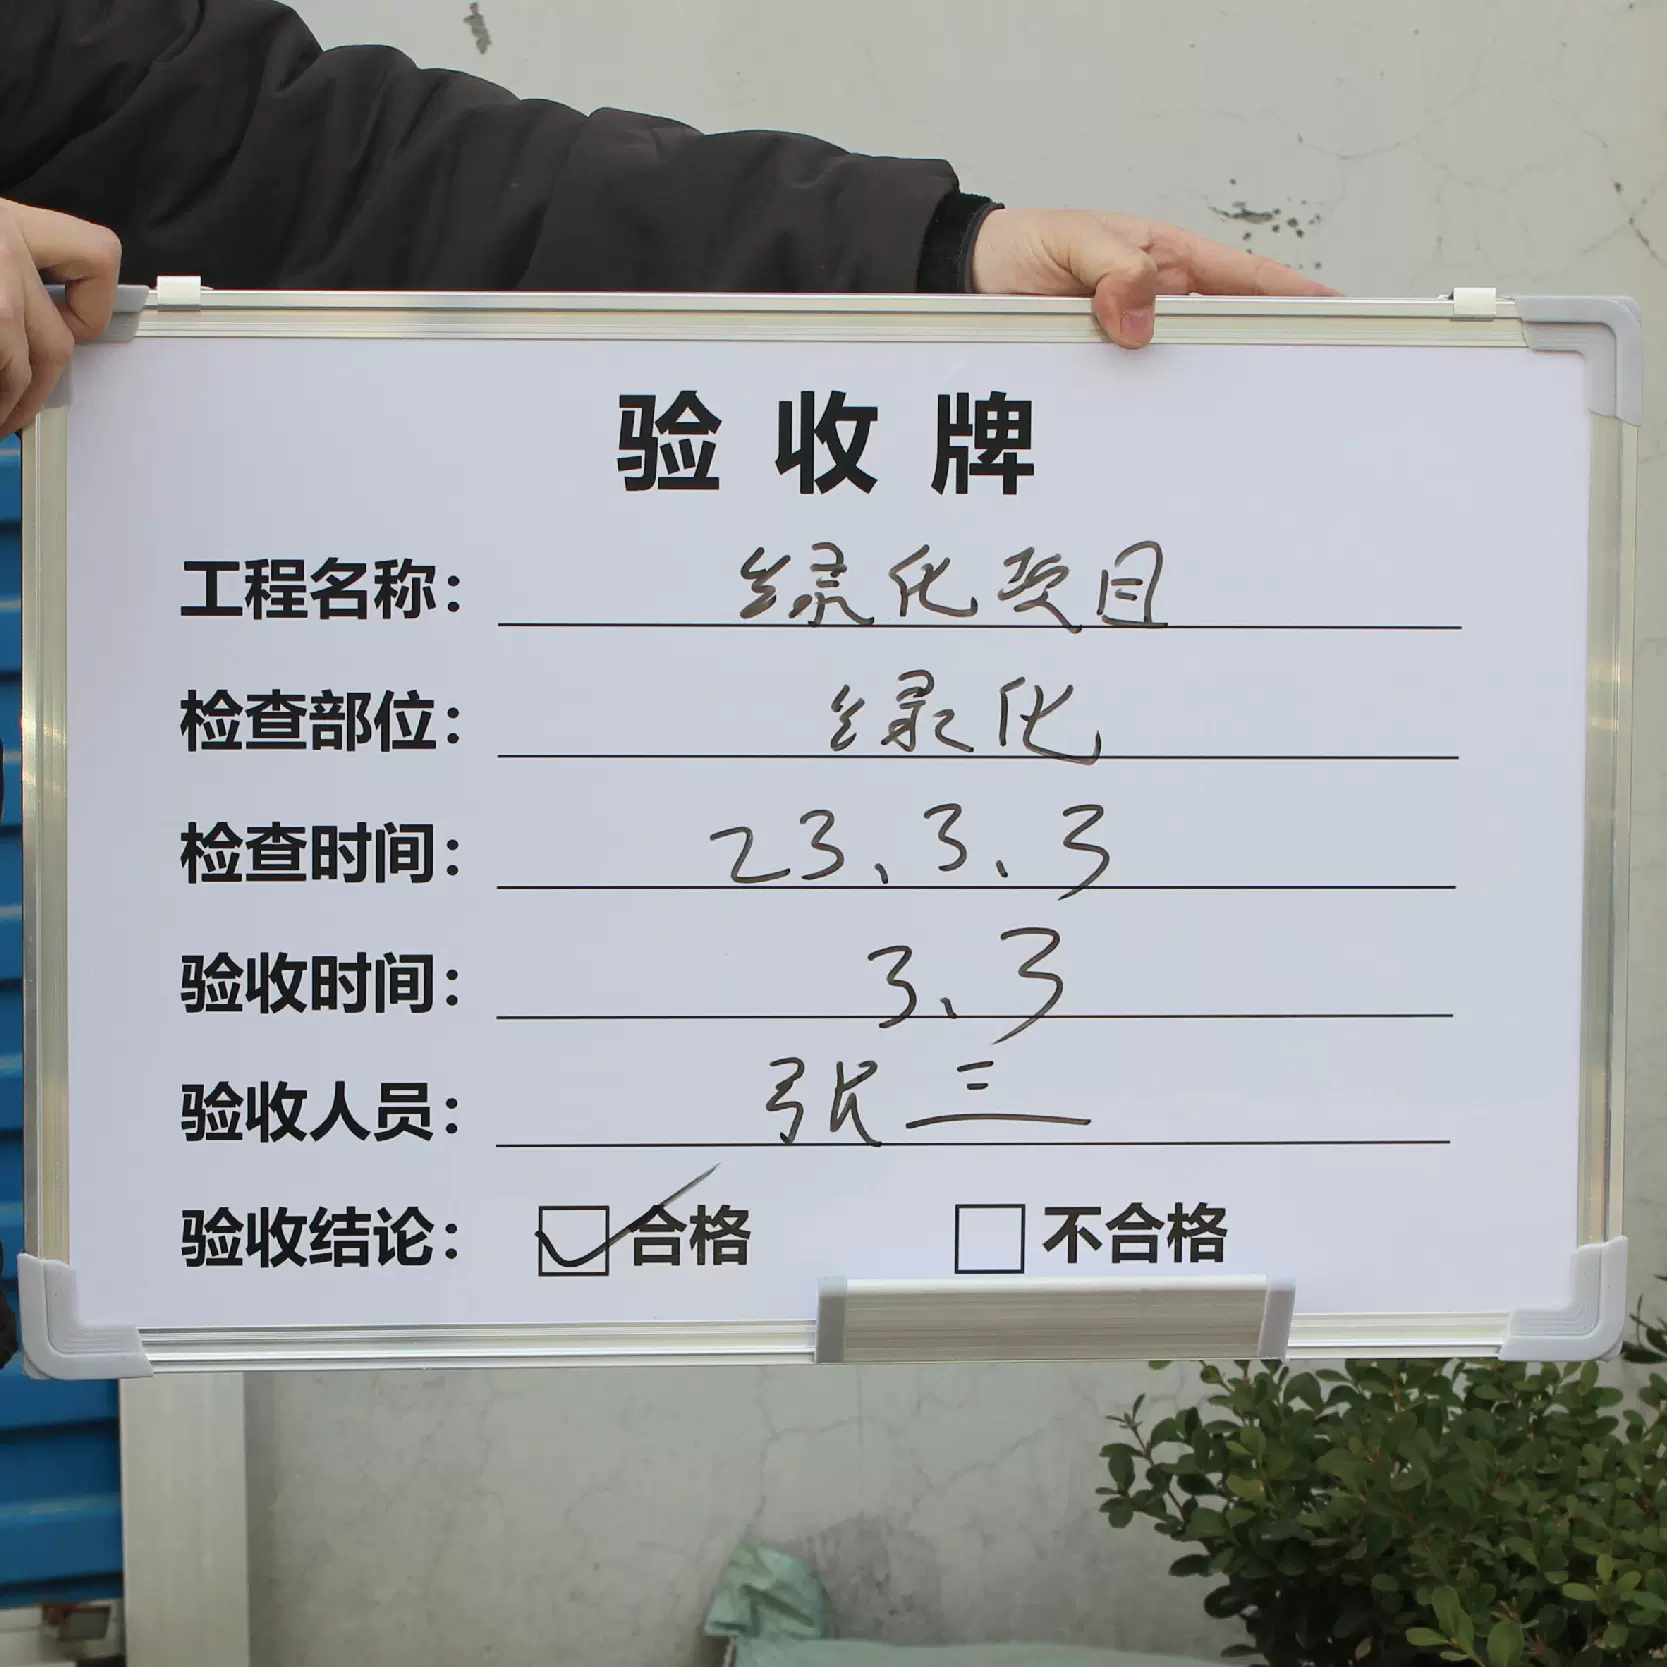 验收牌
工程名称：绿化项目
检查部位：绿化
检查时间：23、3、3
验收时间：3、3
验收人员：张三
验收结论：☑合格 □不合格